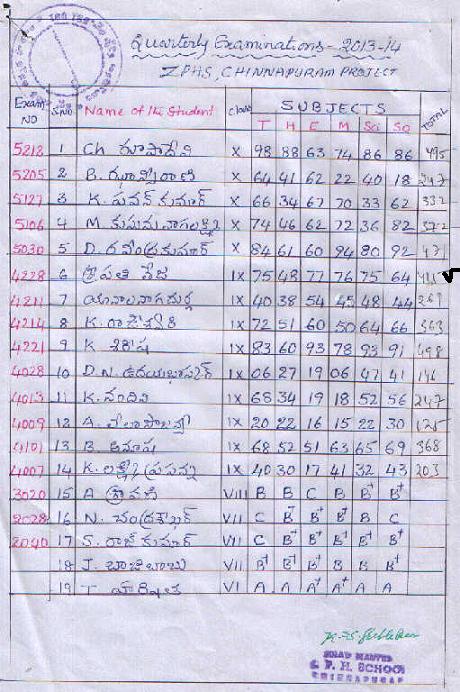 Quarterly Examinations - 2013-14
ZPHS, CHINNAPURAM PROJECT
Exam NO S.NO Name of the Student Class SUBJECTS TOTAL
T H E M Sci So
5212 1 Ch రూపాదేవి X 98 88 63 74 86 86 495
5205 2 B. ఝాన్సీరాణి X 64 41 62 22 40 18 247
5127 3 K. పవన్ కుమార్ X 66 34 67 70 33 62 332
5106 4 M. కుసుమ నాగలక్ష్మి X 74 46 62 72 36 82 372
5030 5 D. రవీంద్రకుమార్ X 84 61 60 94 80 92 471
4228 6 శ్రీపతి తేజ IX 75 48 77 76 75 64
4211 7 IX 40 38 54 45 48 44 269
4214 8 K. రాజేశ్వరి IX 72 51 60 50 64 66 363
4221 9 K శిరీష IX 83 60 93 78 93 91 498
4028 10 D.N. ఉదయభాస్కర్ IX 06 27 19 06 47 41 146
4013 11 K. నందిని IX 68 34 19 18 52 56 247
4009 12 A. IX 20 22 16 15 22 30 125
4101 13 B. IX 68 52 51 63 65 69 368
4007 14 K. లక్ష్మీ ప్రసన్న IX 40 30 17 41 32 43 203
3020 15 A శ్రావణి VIII B B C B B+ B+
2028 16 N. చంద్రశేఖర్ VII C B+ B+ B+ B C
2040 17 S. రాజ్ కుమార్ VII C B+ B+ B+ B+ B+
18 J. బాజిబాబు VII B+ B+ B+ B+ B+ B+
19 T. హారిషిత VI A A A+ A+ A A
HEAD MASTER
Z. P. H. SCHOOL
CHINNAPURAM